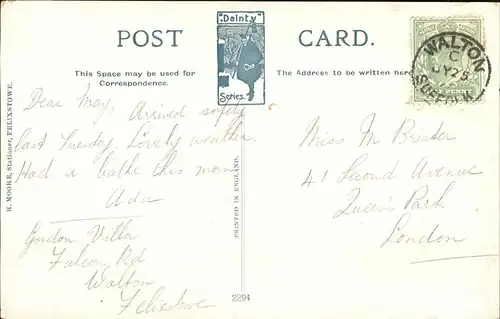 POST CARD.
"Dainty"
Series.
This Space may be used for
Correspondence.
The Address to be written here
WALTON
C
JY 25
SUFFOLK
PENNY
Dear May, Arrived safely
last Tuesday. Lovely weather.
Had a bathe this morn
Ada
Gordon Villa
Falcon Rd
Walton
Felixstowe
Miss M
41 Second Avenue
Queen's Park
London
H. MOORE, Stationer, FELIXSTOWE.
PRINTED IN ENGLAND.
2294